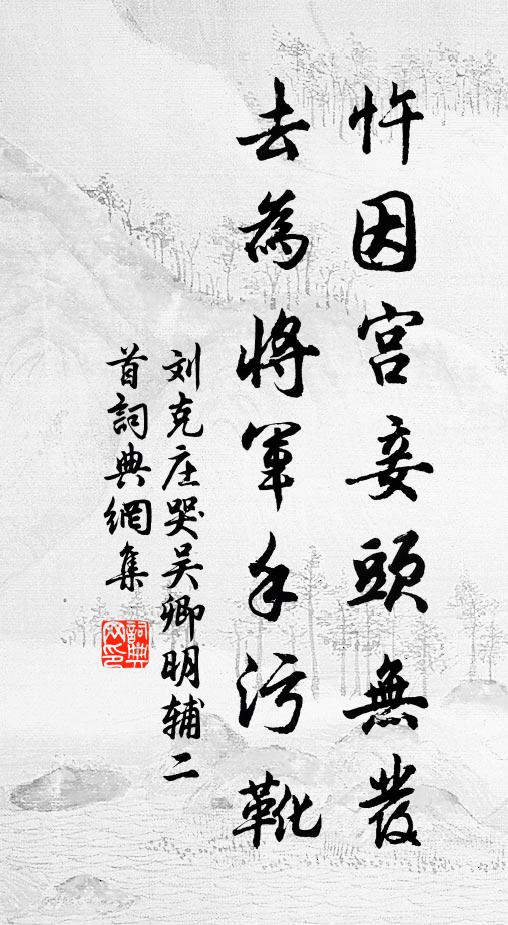 忤因宫妾頭無發
去為將軍手污靴
刘克庄哭吴卿明辅二
首詞典網集
詞典
网印